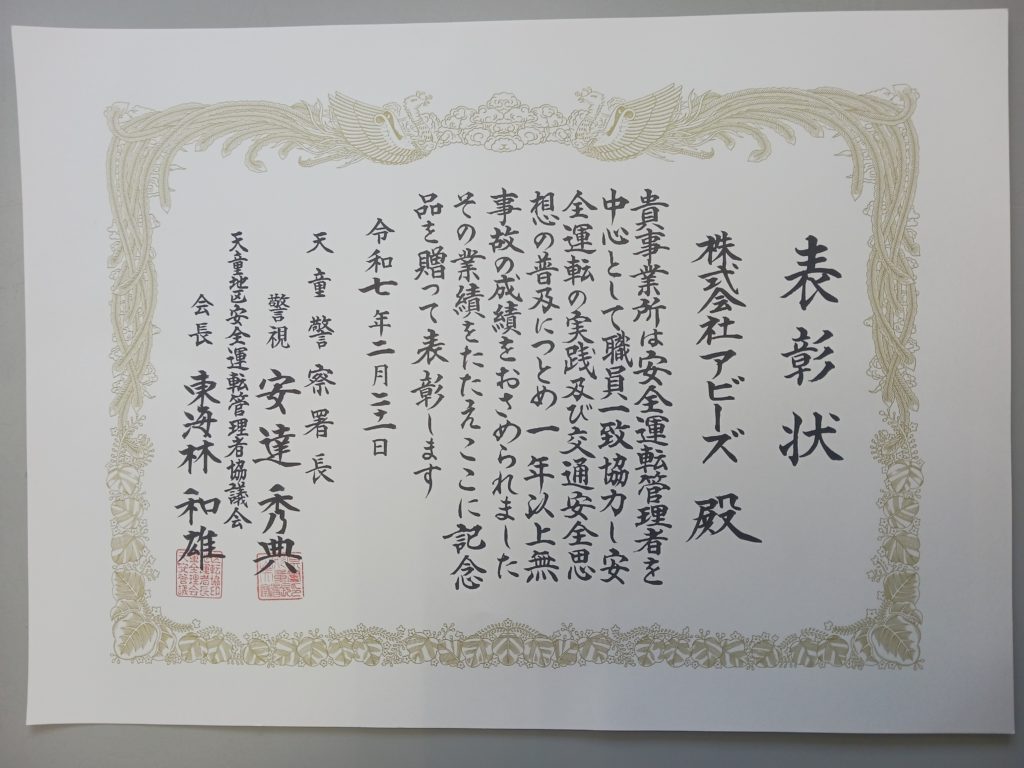 表彰状
株式会社アビーズ 殿
貴事業所は安全運転管理者を
中心として職員一致協力し安
全運転の実践及び交通安全思
想の普及につとめ一年以上無
事故の成績をおさめられました
その業績をたたえここに記念
品を贈って表彰します
令和七年二月二十一日
天童警察署長
警視 安達秀典
天童地区安全運転管理者協議会
会長 東海林和雄